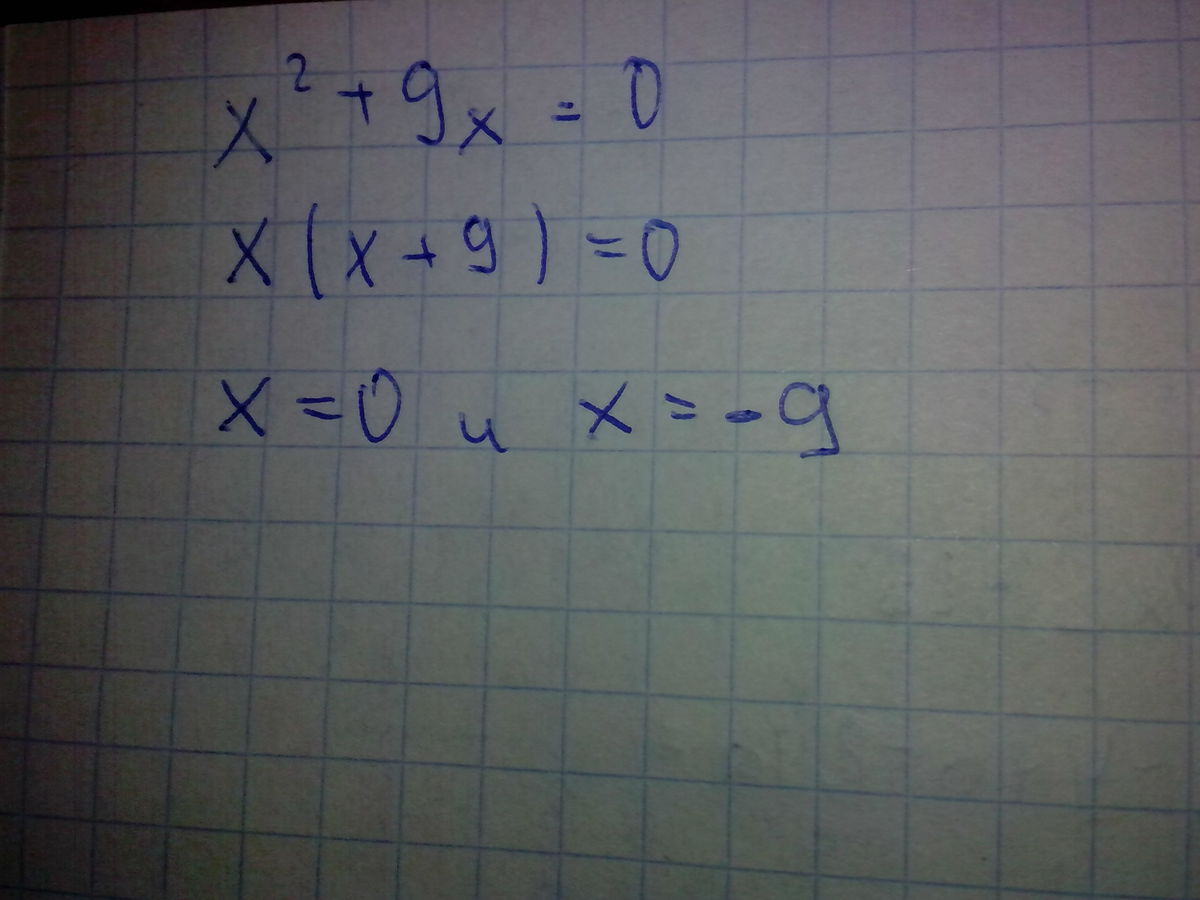 x² + 9x = 0
x(x+9) = 0
x = 0 и x = -9